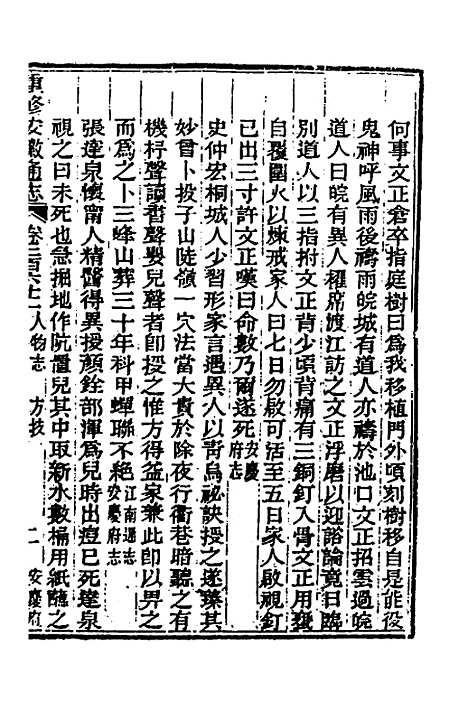 何事文正倉卒指庭樹曰爲我移植門外頃刻樹移自是能役
鬼神呼風雨後禱雨皖城有道人亦禱於池口文正招雲過皖
道人曰皖有異人櫂席渡江訪之文正浮磨以迎談論竟日臨
別道人以三指拊文正背少頃背痛有三銅釘入骨文正用甕
自覆圍火以煉戒家人曰七日勿啟可活至五日家人啟視釘
已出三寸許文正嘆曰命數乃爾遂死安慶府志
史仲宏桐城人少習形家言遇異人以靑烏祕訣授之遂臻其
妙曾卜投子山陡嶺一穴法當大貴於除夜行衢巷暗聽之有
機杼聲讀書聲嬰兒聲者即授之惟方得盆家兼此即以畀之
而爲之卜三峰山葬三十年科甲蟬聯不絕江南通志安慶府志
張達泉懷甯人精醫得異授顏銓部渾爲兒時出痘已死達泉
視之曰未死也急掘地作阬置兒其中取新水數桶用紙蘸之
重修安徽通志 卷二百六十二 人物志 方技 二